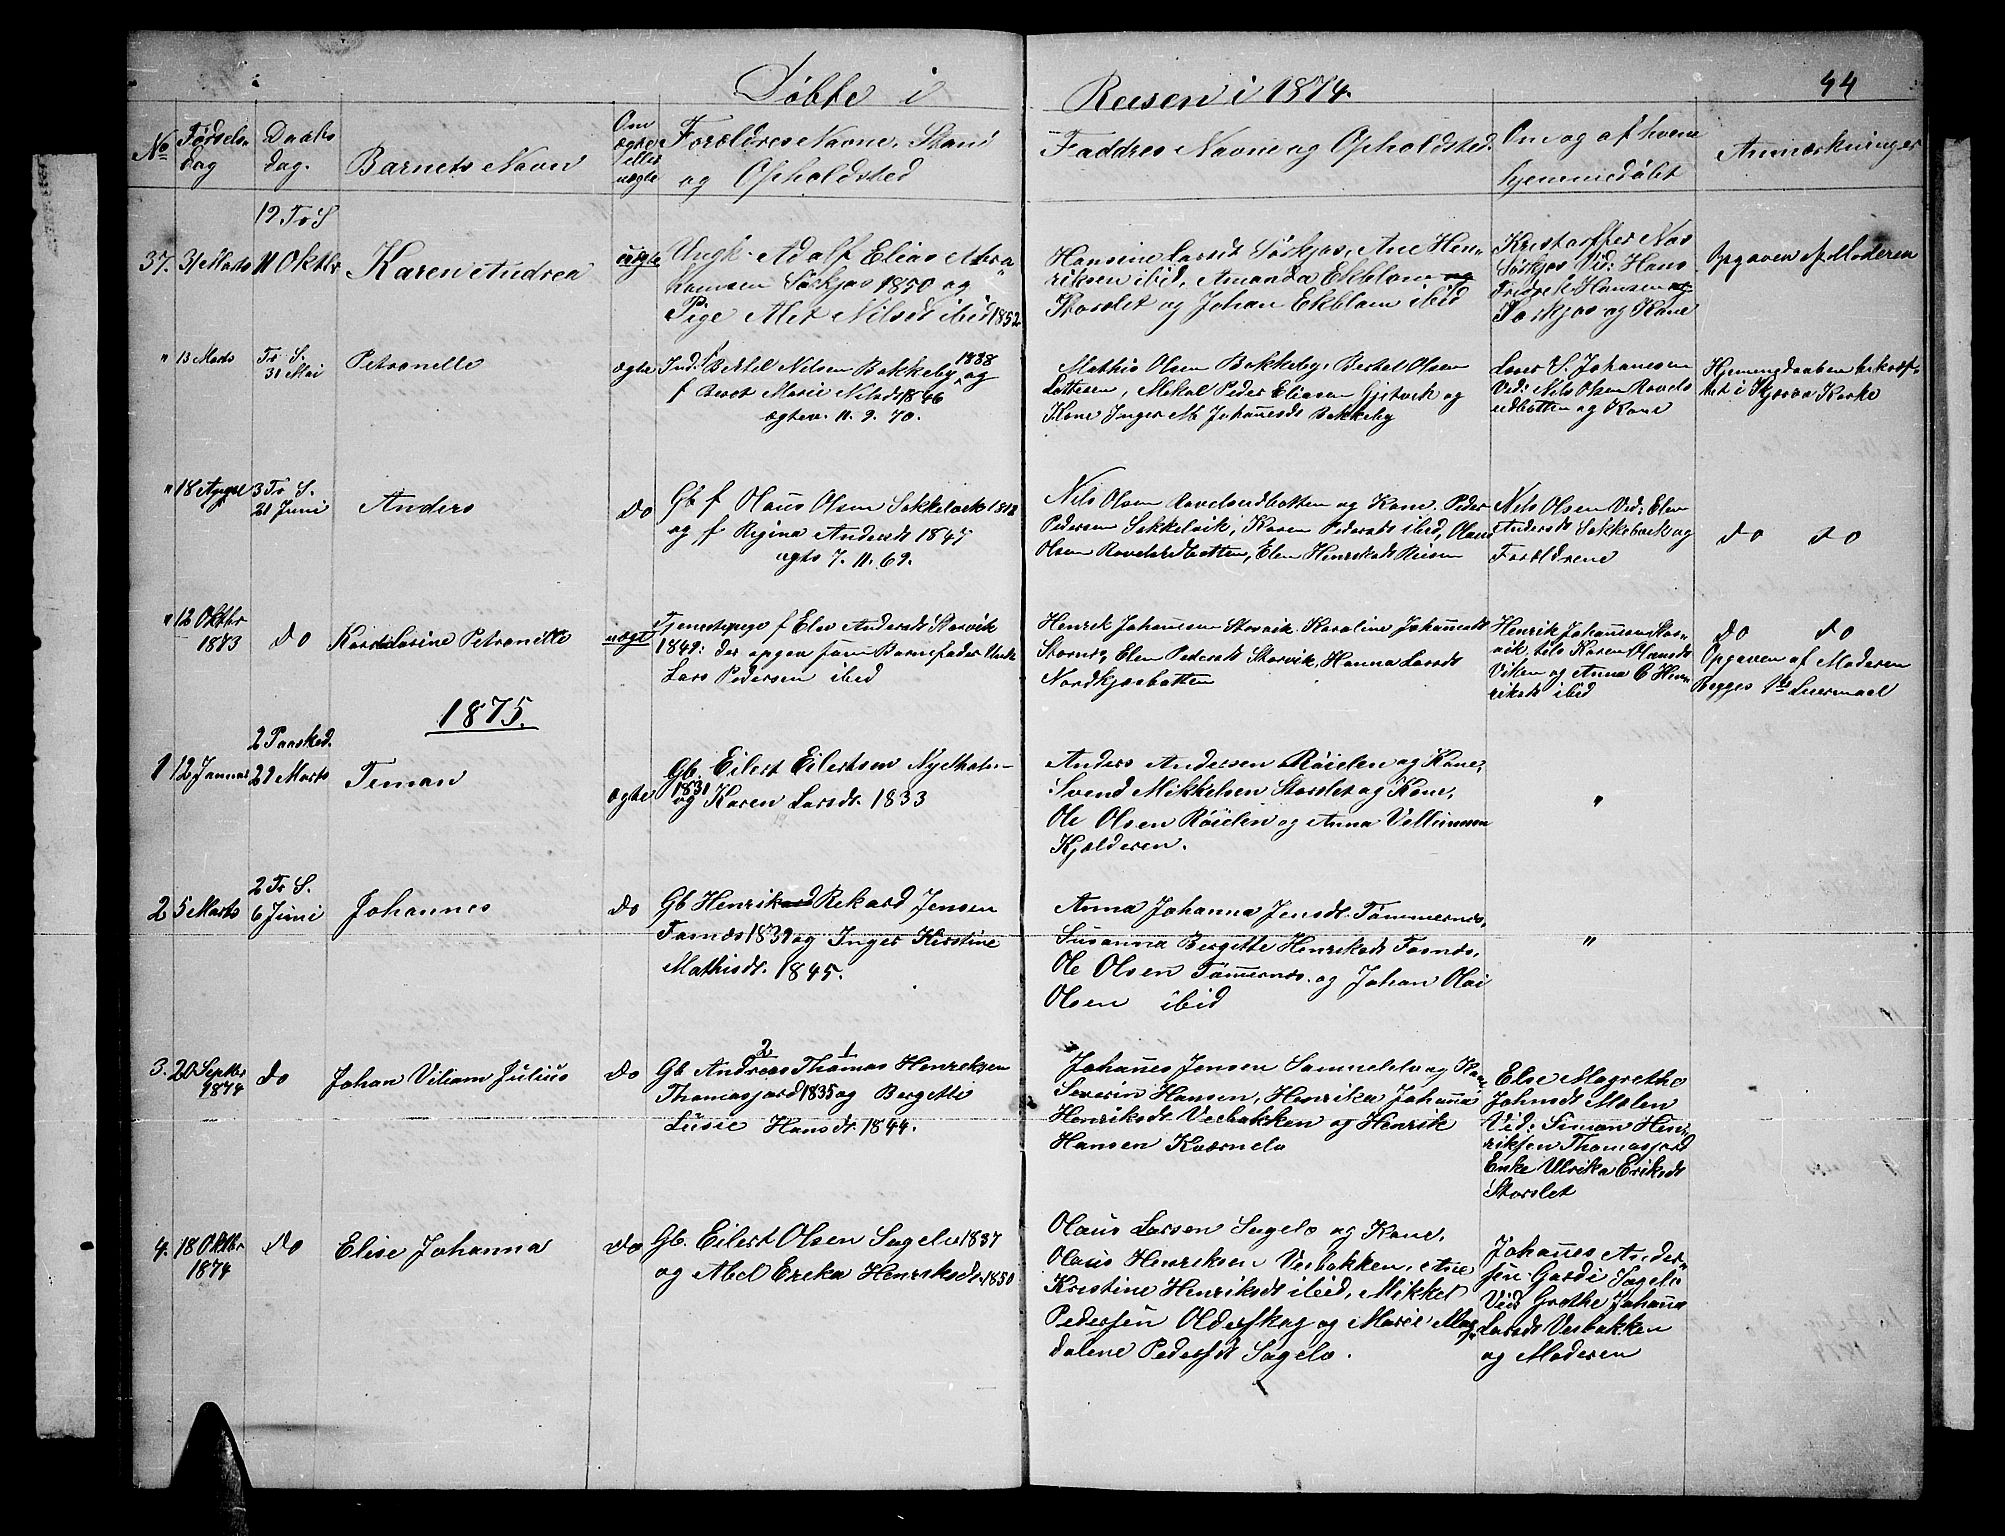 Døbte i Reisen i 1874. 44
No Fødsels- dag Daabs dag. Barnets Navn Om ægte eller uægte Forældres Navne, Stand og Opholdsted Faddres Navne og Opholdsted. Om og af hvem hjemmedøbt Anmærkninger
19 Tr S
37. 31 Marts 11 Oktbr Karen Andrea uægte
Ungk. Adolf Elias Abra-
hamsen Sørkjos 1850 og
Pige Alet Nilsd ibid 1852
Hansine Larsdt Sørkjos, Ane Hen-
riksen ibid, Amanda Ekblom og
Storslet og Johan Ekblom ibid
Kristoffer Nos
Sørkjos Vid: Hans
Fredrik Hansen og
Sørkjos og Kone
Opgaven af Moderen
" 13 Marts Tr S. 31 Mai Petronelle ægte
Ind. f Bertel Nilsen Bakkeby 1838 og
f Beret Marie Nilsdt 1846
ægtev. 11. 9. 70.
Mathis Olsen Bakkeby, Bertel Olsen
Lottesen, Mekal Peder Eliasen Gjetvik og
Kone Inger M. Johannesdt Bakkeby
Lærer S. Johannesen
Ved: Nils Olsen Ravels
eidbotten og Kone
Hjemmedaaben bekræf-
tet i Skjervø Kirke
" 18 April 3 Tr S. 21 Juni Anders do
Gb f Olaus Olsen Sokkelvik 1842
og f Regina Andersdt 1847
ægte 7. 11. 69.
Nils Olsen Ravelseidbotten og Kone. Peder
Pedersen Sokkelvik, Karen Pedersdt ibid, Olaus
Olsen Ravelseidbotten, Elen Henriksdt Reisen
Nils Olsen Ved: Elen
Andersdt Sokkelvik og
Forældrene
do do
" 12 Oktbr 1873 do Karel Lovine Petronelle uægt
Tjenestepige f Elen Andersdt Storvik
1849: der opgav som Barnefader Unk
Lars Pedersen ibid
Henrik Johannesen Storvik. Karoline Johannesdt
Stornes, Elen Pedersdt Storvik, Hanna Larsdt
Nordkjosbotten
Henrik Johannesen Stor-
vik tils Karen Olausdt
Viken og Anna C Hen-
riksdt ibid
do do
Opgaven af Moderen
Begges 1ste Leiermaal
1875.
1 12 Januar 2 Paasked. 29 Marts Teman ægte
Gb. Eilert Eilertsen Nyelholm
1831
og Karen Larsdt. 1833
Anders Andersen Røielen og Kone,
Svend Mikkelsen Storslet og Kone,
Ole Olsen Røielen og Anna Vellumsen
Kjælderen.
"
2 5 Marts 2 Tr S. 6 Juni Johannes do
Gb Henrik Rekard Jensen
Fosnæs 1839 og Inger Kirstine
Mathisdt. 1845.
Anna Johanna Jensdt. Tømmernæs,
Susanna Bergitte Henriksdt Fosnæs,
Ole Olsen Tømernæs. og Johan Olai
Olsen ibid
"
3. 20 Septbr 1874 do Johan Viliam Julius do
2 1
Gb Andreas Thomas Henriksen
Thomasjord 1835 og Bergette
Lusie Hansdt. 1844.
Johannes Jensen Sammelelv og Kone
Severin Hansen, Henrika Johanna
Henriksdt Veibakken og Henrik
Hansen Kværnelv
Else Magrethe
Johnsdt Molen
Vid: Simon Hen-
riksen Thomasjord
Enke Ulrika Eriksdt
Storslet
4. 18 Oktbr 1874 do Elise Johanna do
Gb. Eilert Olsen Sagelv 1837
og Abel Ereka Henriksdt. 1850
Olaus Larsen Sagelv og Kone,
Olaus Henriksen Veibakken, Ane
Kristine Henriksdt ibid, Mikkel
Pedersen Olderskog og Marie Mag-
dalene Pedersdt Sagelv.
Johannes Ander-
sen Gardi Sagelv
Vid Grethe Johanna
Larsdt Veibakken
og Moderen